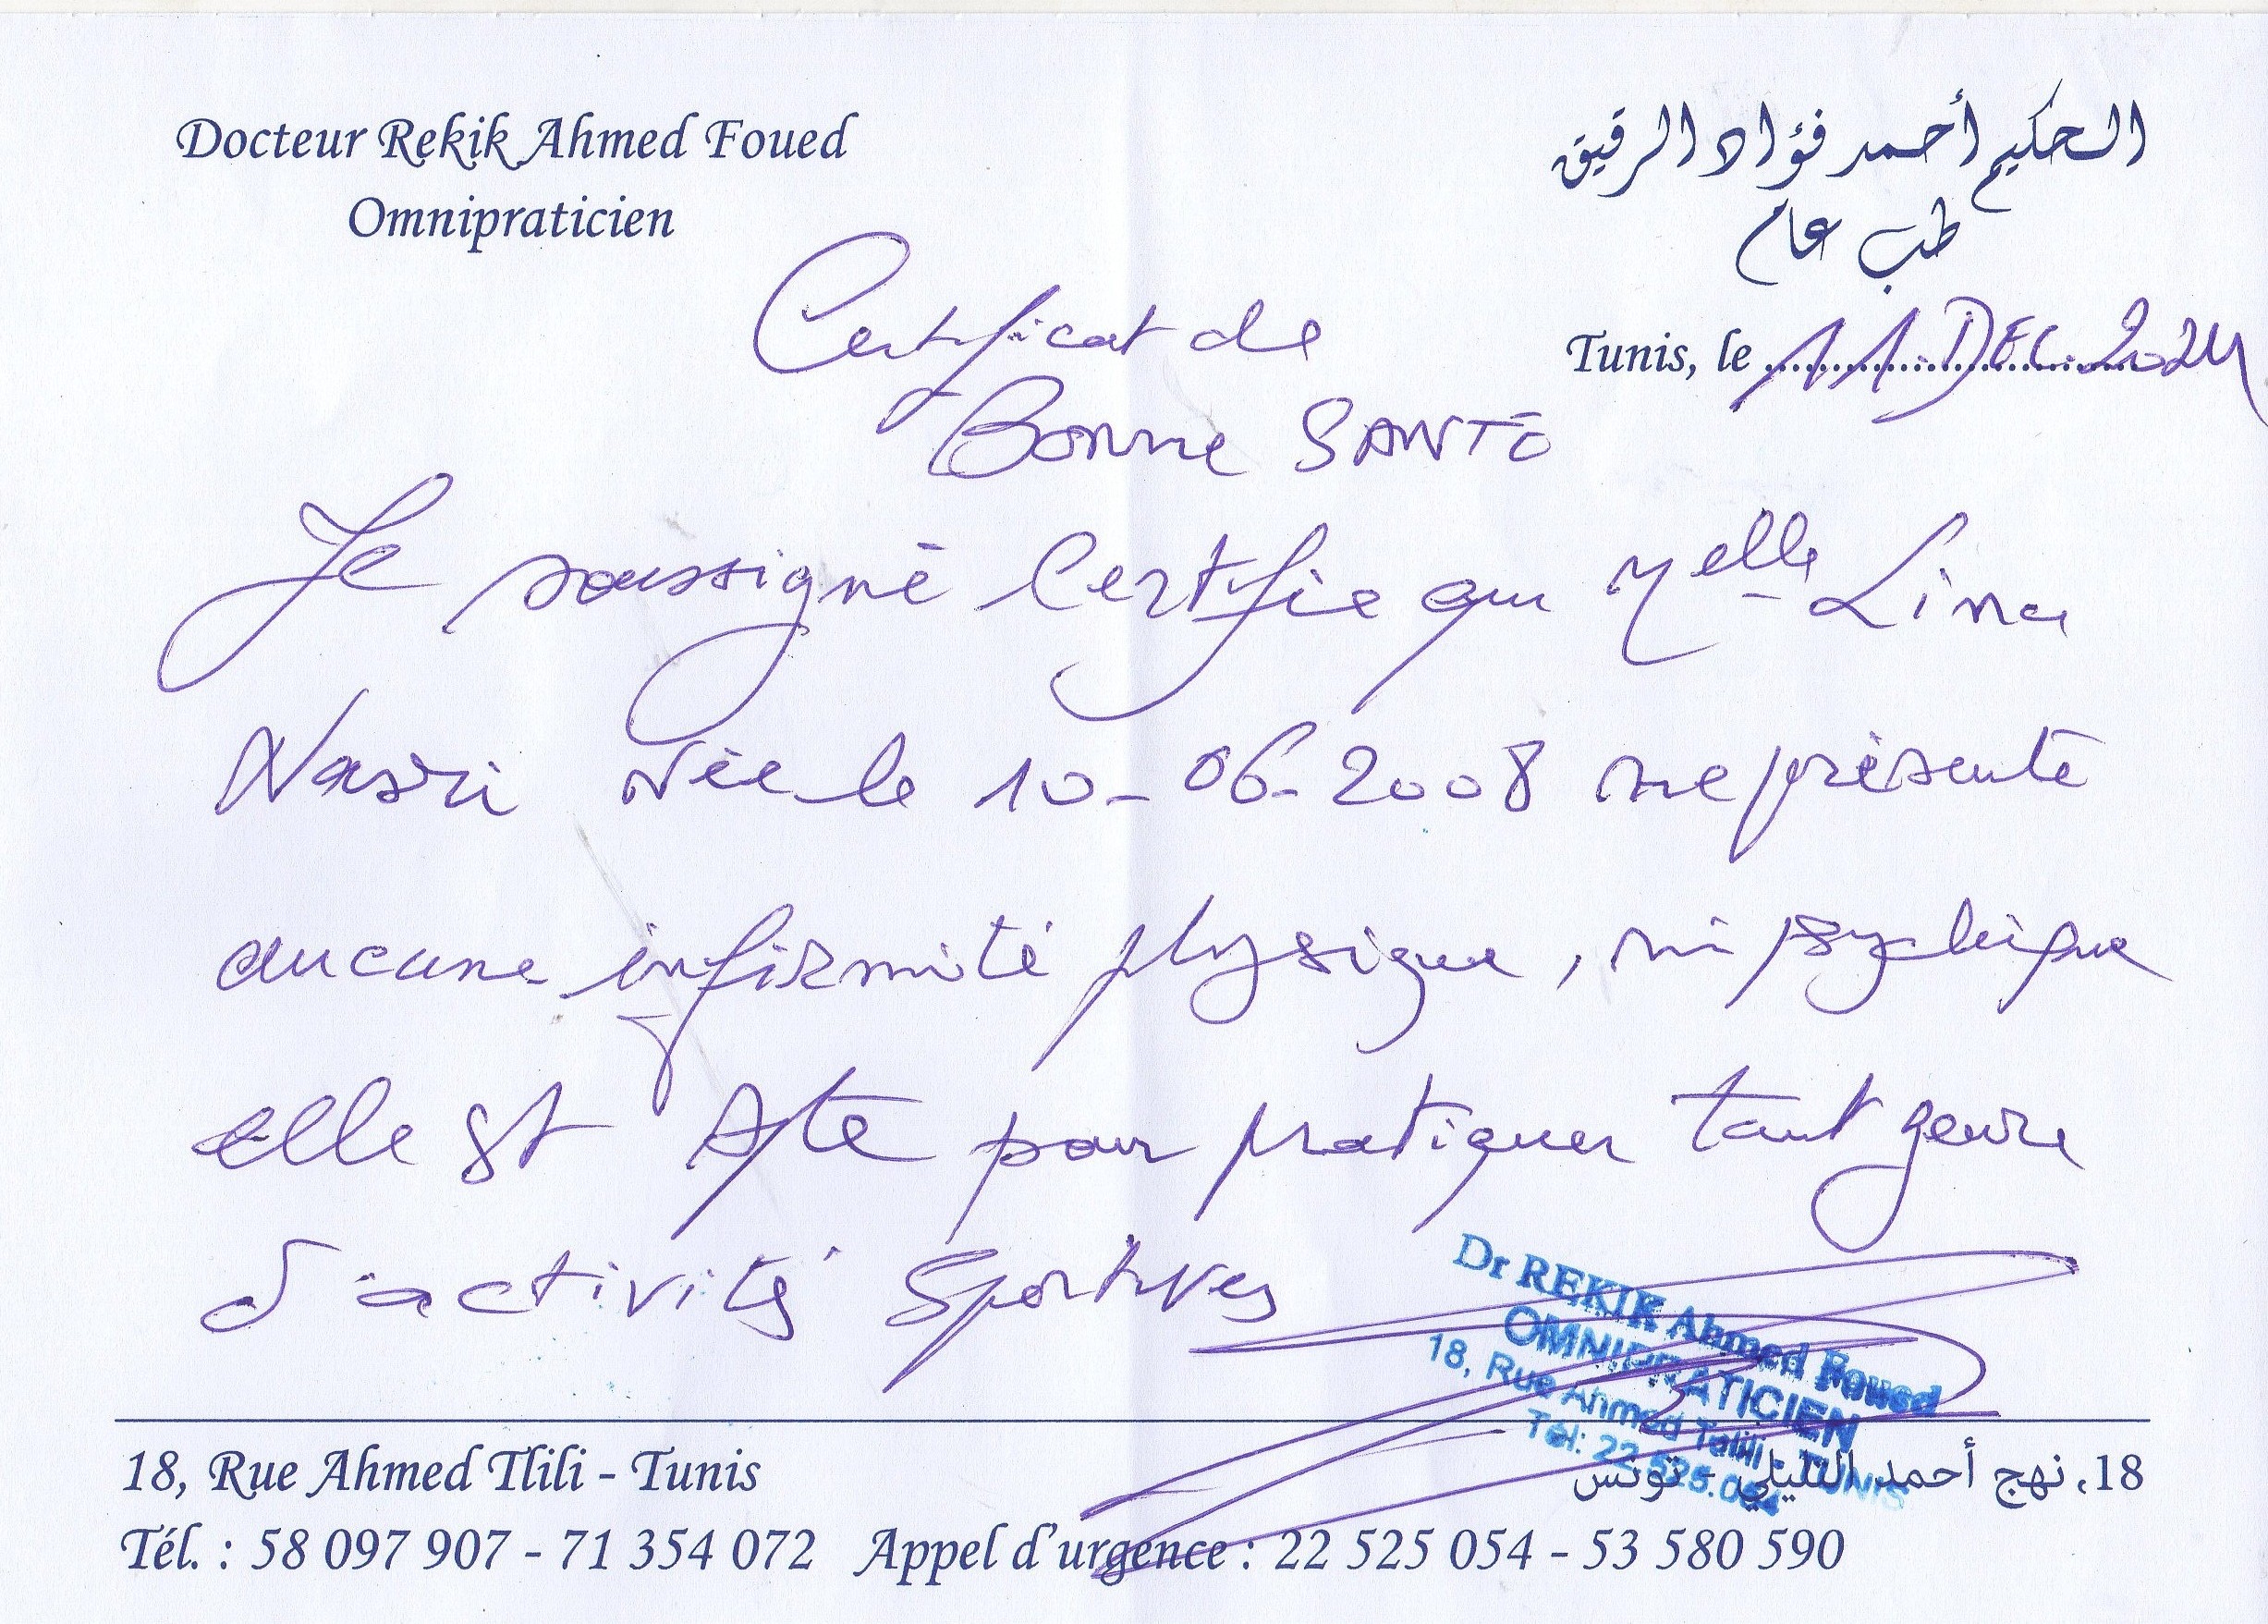 Docteur Rekik Ahmed Foued
Omnipraticien
الحكيم أحمد فؤاد الرقيق
طب عام
Tunis, le 11 DEC. 2024
Certificat de
Bonne SANTÉ
Je soussigné Certifie que Melle Lina
Nasri Née le 10-06-2008 ne présente
aucune infirmité physique, ni psychique
elle est Apte pour pratiquer tout genre
d'activités Sportives
Dr REKIK Ahmed Foued
OMNIPRATICIEN
18, Rue Ahmed Tlili - TUNIS
Tél: 22.525.054
18, Rue Ahmed Tlili - Tunis
18، نهج أحمد التليلي - تونس
Tél. : 58 097 907 - 71 354 072 Appel d'urgence : 22 525 054 - 53 580 590